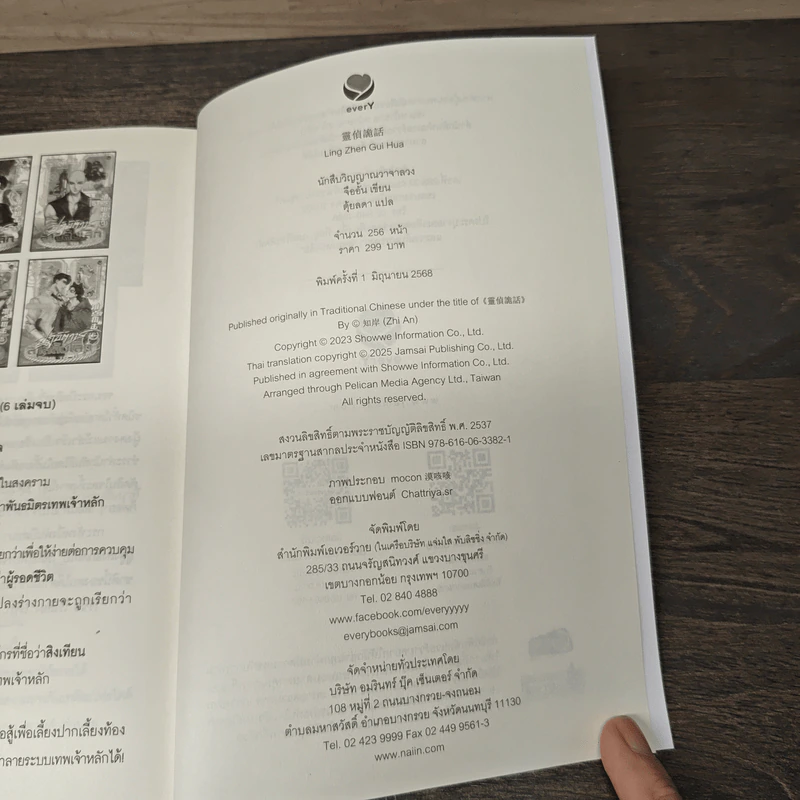 (6 เล่มจบ)
ในสงคราม
าพันธมิตรเทพเจ้าหลัก
ยกว่าเพื่อให้ง่ายต่อการควบคุม
าผู้รอดชีวิต
ปลงร่างกายจะถูกเรียกว่า
กรที่ชื่อว่าสิงเทียน
ทพเจ้าหลัก
อสู้เพื่อเลี้ยงปากเลี้ยงท้อง
ำลายระบบเทพเจ้าหลักได้!
everY
靈偵詭話
Ling Zhen Gui Hua
นักสืบวิญญาณวาจาลวง
จืออั้น เขียน
ตุ้ยลดา แปล
จำนวน 256 หน้า
ราคา 299 บาท
พิมพ์ครั้งที่ 1 มิถุนายน 2568
Published originally in Traditional Chinese under the title of《靈偵詭話》
By © 知岸 (Zhi An)
Copyright © 2023 Showwe Information Co., Ltd.
Thai translation copyright © 2025 Jamsai Publishing Co., Ltd.
Published in agreement with Showwe Information Co., Ltd.
Arranged through Pelican Media Agency Ltd., Taiwan
All rights reserved.
สงวนลิขสิทธิ์ตามพระราชบัญญัติลิขสิทธิ์ พ.ศ. 2537
เลขมาตรฐานสากลประจำหนังสือ ISBN 978-616-06-3382-1
ภาพประกอบ mocon 漠咳嗽
ออกแบบฟอนต์ Chattriya.sr
จัดพิมพ์โดย
สำนักพิมพ์เอเวอร์วาย (ในเครือบริษัท แจ่มใส พับลิชชิ่ง จำกัด)
285/33 ถนนจรัญสนิทวงศ์ แขวงบางขุนศรี
เขตบางกอกน้อย กรุงเทพฯ 10700
Tel. 02 840 4888
www.facebook.com/everyyyyy
everybooks@jamsai.com
จัดจำหน่ายทั่วประเทศโดย
บริษัท อมรินทร์ บุ๊ค เซ็นเตอร์ จำกัด
108 หมู่ที่ 2 ถนนบางกรวย-จงถนอม
ตำบลมหาสวัสดิ์ อำเภอบางกรวย จังหวัดนนทบุรี 11130
Tel. 02 423 9999 Fax 02 449 9561-3
www.naiin.com